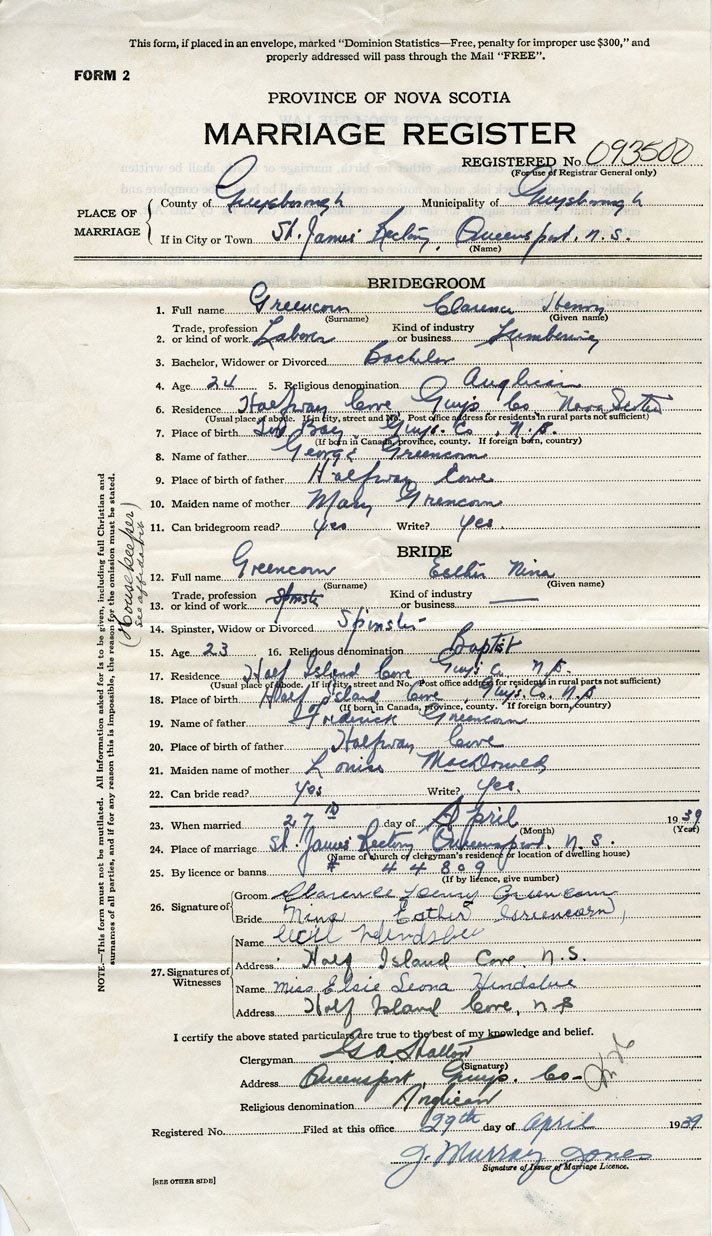 This form, if placed in an envelope, marked "Dominion Statistics—Free, penalty for improper use $300," and
properly addressed will pass through the Mail "FREE".
FORM 2
PROVINCE OF NOVA SCOTIA
MARRIAGE REGISTER
REGISTERED No. 093500
(For use of Registrar General only)
PLACE OF MARRIAGE
County of Guysborough Municipality of Guysborough
If in City or Town St. James' Rectory, Queensport, N.S.
(Name)
BRIDEGROOM
1. Full name Greencorn Clarence Henry
(Surname) (Given name)
2. Trade, profession or kind of work Labor Kind of industry or business Lumbering
3. Bachelor, Widower or Divorced Bachelor
4. Age 24 5. Religious denomination Anglican
6. Residence Halfway Cove Guys Co Nova Scotia
(Usual place of abode. If in city, street and No. Post office address for residents in rural parts not sufficient)
7. Place of birth Bay Guys. Co. N.S.
(If born in Canada, province, county. If foreign born, country)
8. Name of father George Greencorn
9. Place of birth of father Halfway Cove
10. Maiden name of mother Mary Grencorn
11. Can bridegroom read? Yes Write? Yes.
BRIDE
12. Full name Greencorn Esther Nina
(Surname) (Given name)
13. Trade, profession or kind of work Kind of industry or business —
(Housekeeper)
see affidavit
14. Spinster, Widow or Divorced Spinster
15. Age 23 16. Religious denomination Baptist
17. Residence Half Island Cove Guys Co. N.S.
(Usual place of abode. If in city, street and No. Post office address for residents in rural parts not sufficient)
18. Place of birth Half Island Cove, Guys. Co. N.S
(If born in Canada, province, county. If foreign born, country)
19. Name of father Frederick Greencorn
20. Place of birth of father Halfway Cove
21. Maiden name of mother Louisa MacDonald
22. Can bride read? Yes Write? Yes.
23. When married 27th day of April 1939
(Month) (Year)
24. Place of marriage St. James' Rectory Queensport, N.S.
(Name of church or clergyman's residence or location of dwelling house)
25. By licence or banns # 44809
(If by licence, give number)
26. Signature of Groom Clarence Henry Greencorn
Bride Nina Esther Greencorn
27. Signatures of Witnesses
Name Cecil Hendsbee
Address Half Island Cove, N.S.
Name Miss Elsie Leona Hendsbee
Address Half Island Cove, N.S
I certify the above stated particulars are true to the best of my knowledge and belief.
Clergyman
(Signature)
Address Queensport Guys. Co.
Religious denomination Anglican
Registered No. Filed at this office 29th day of April 1939
J. Murray Jones
Signature of Issuer of Marriage Licence.
[SEE OTHER SIDE]
NOTE.—This form must not be mutilated. All information asked for is to be given, including full Christian and
surnames of all parties, and if for any reason this is impossible, the reason for the omission must be stated.